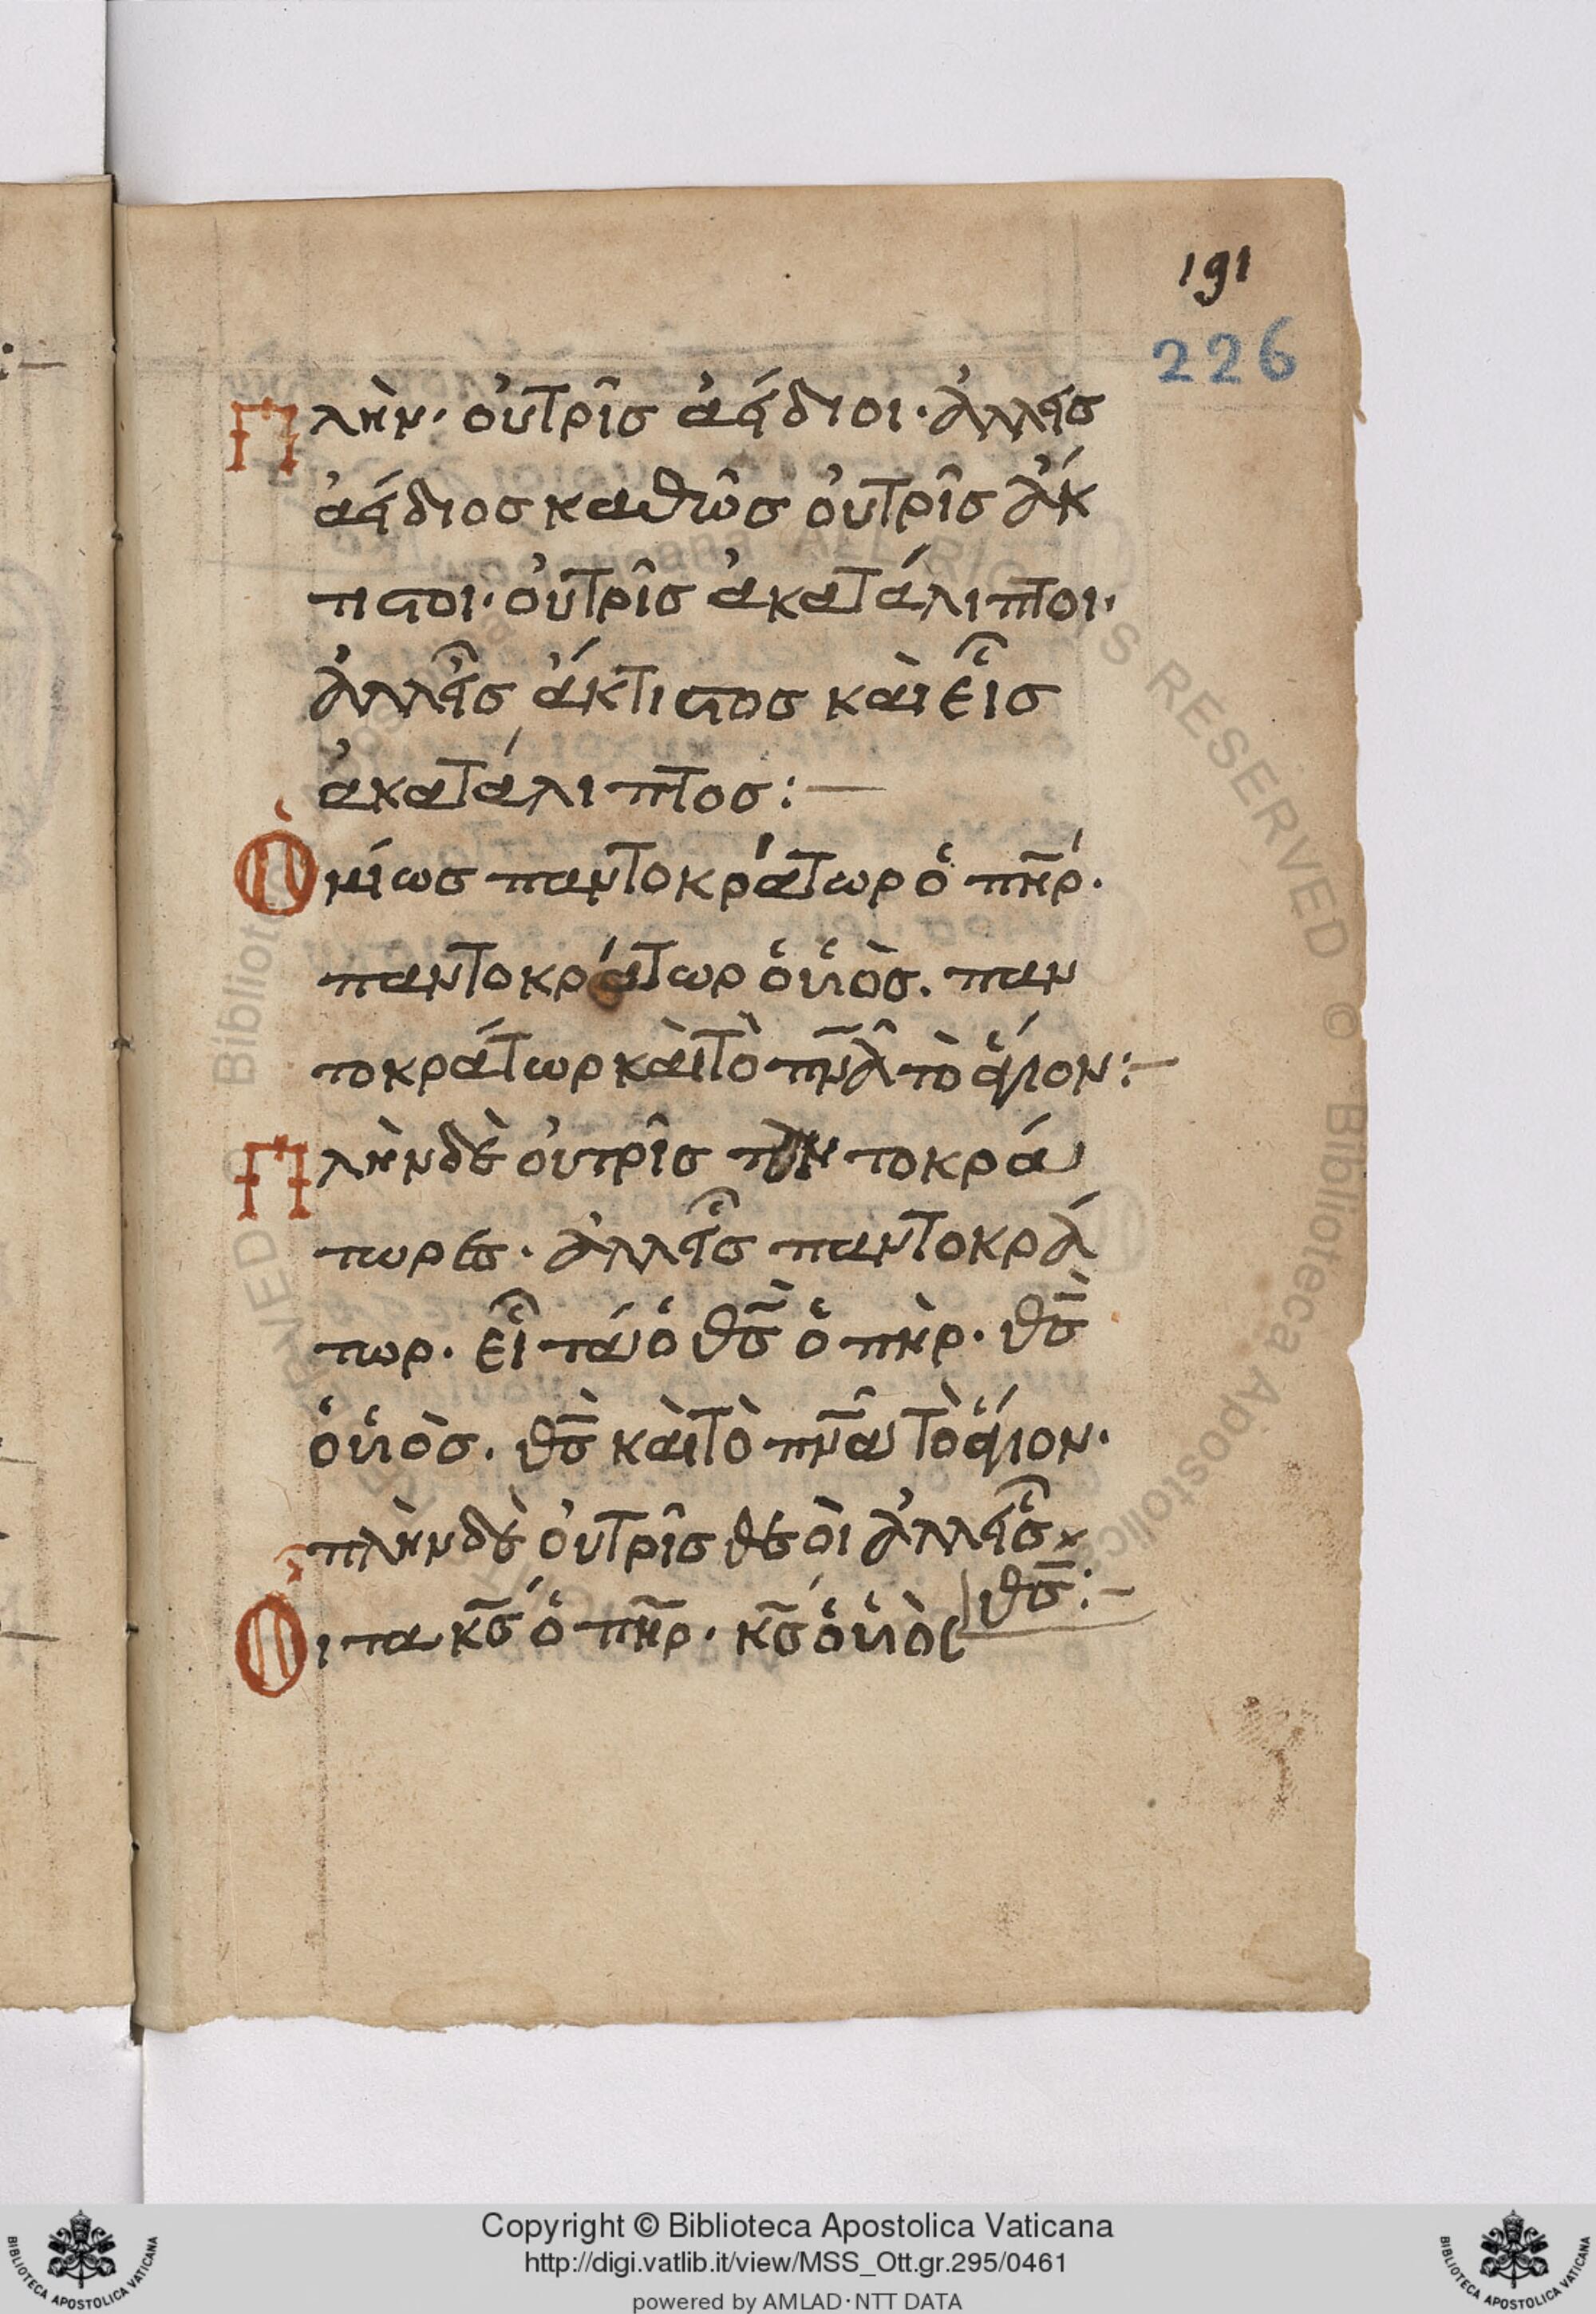 191
226
Πλὴν· οὐ τρῖς ἀΐδιοι· ἀλλ εἷς
ἀΐδιος καθῶς οὐ τρῖς ἄκ
τιστοι· οὐ τρῖς ἀκατάλιπτοι·
ἀλλ εἷς ἄκτιστος κὰι εἷς
ἀκατάλιπτος:—
Ὁμίως παντοκράτωρ ὁ πη̄ρ·
παντοκράτωρ ὁ υἱὸς. παν
τοκράτωρ κὰι τὸ πν̄ᾶ τὸ ἅγιον:—
Πλὴν δὲ οὐ τρῖς παν τοκρά
τωρες. ἀλλ εἷς παντοκρά
τωρ. εἶτα ὁ θς̄ ὁ πὴρ. θς̄
ὁ υἱὸς. θς̄ κὰι τὸ πν̄ᾶ τὸ ἅγιον.
πλὴν δὲ οὐ τρῖς θεὸι ἀλλ εἷς
θς̄:—
Ὅιτα κς̄ ὁ πη̄ρ. κς̄ ὁ υἱὸς
Copyright © Biblioteca Apostolica Vaticana
http://digi.vatlib.it/view/MSS_Ott.gr.295/0461
powered by AMLAD·NTT DATA